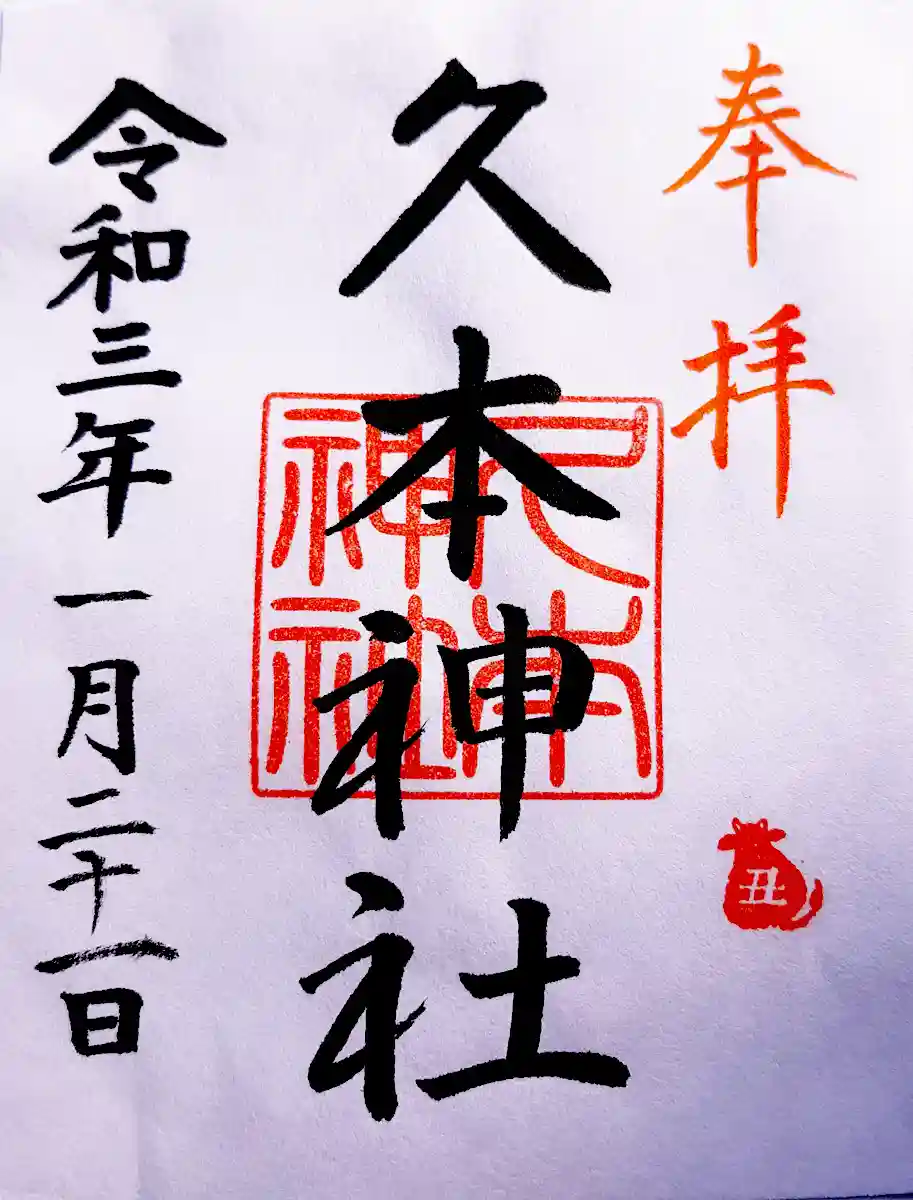 奉拝
久本神社
久本神社
丑
令和三年一月二十一日